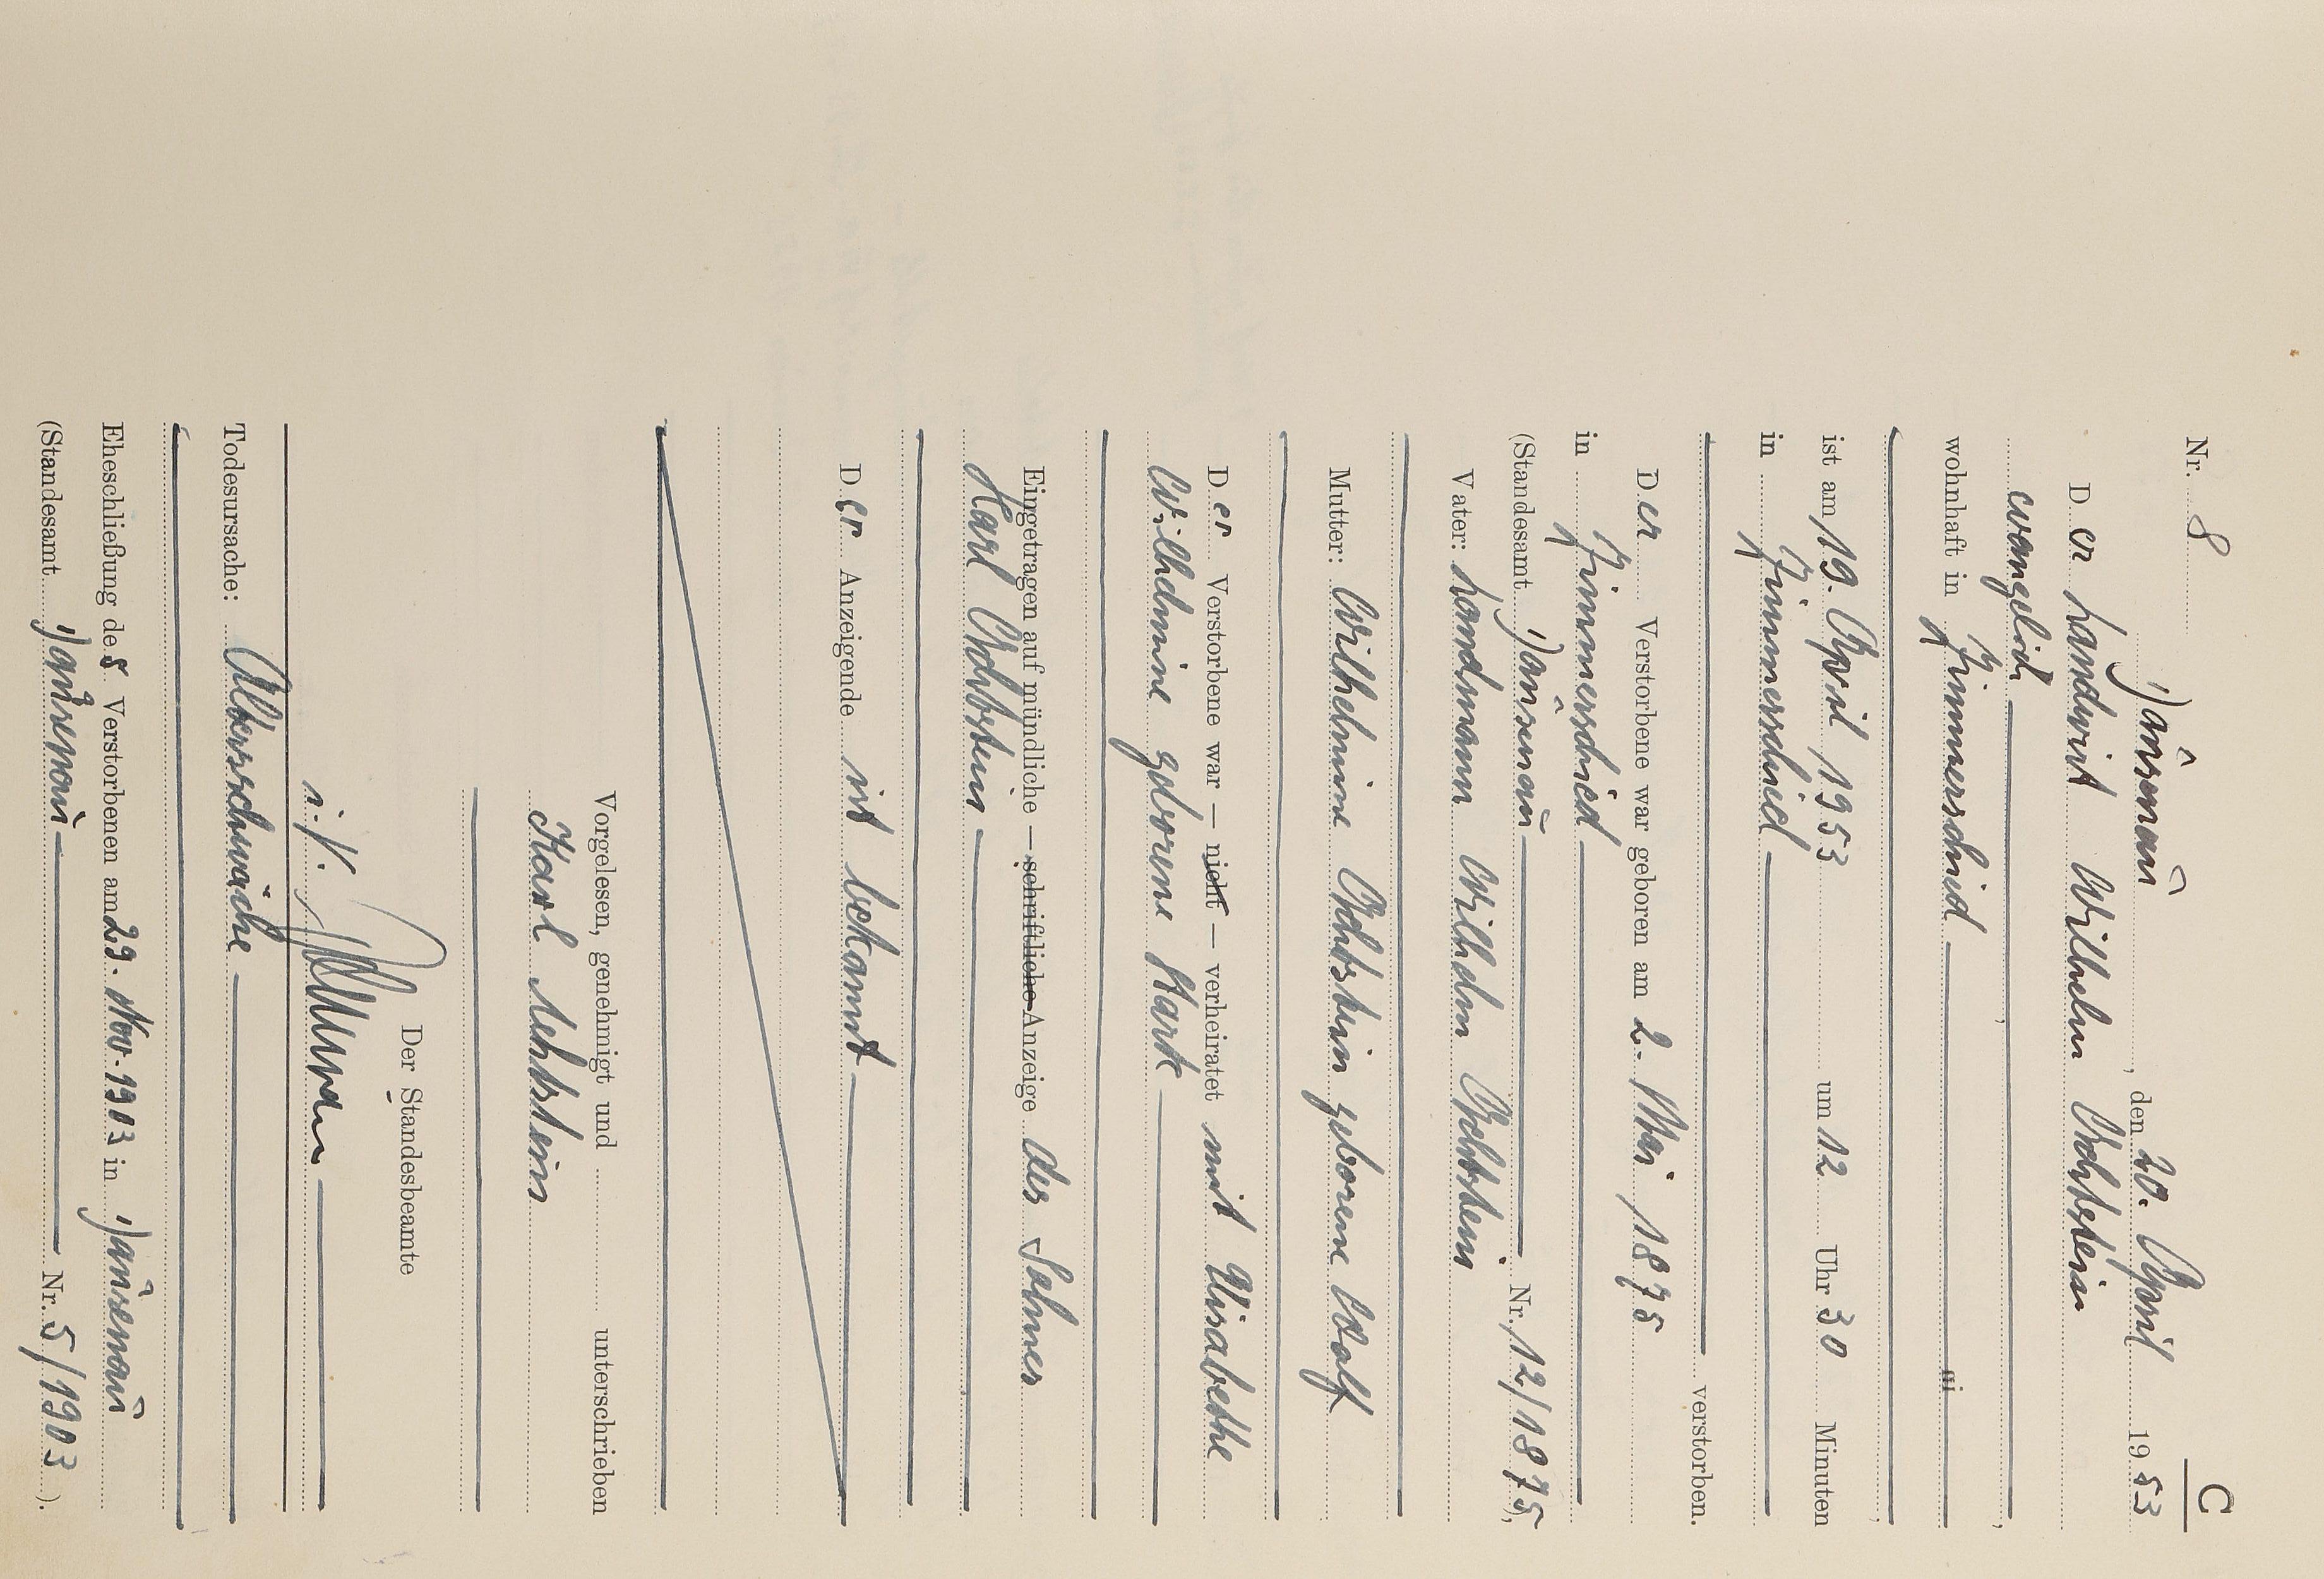 C
Nr. 8
Dausenau, den 20. April 1953
Der Landwirt Wilhelm Achtstein
evangelisch,
wohnhaft in Zimmerschied
ist am 19. April 1953 um 12 Uhr 30 Minuten
in Zimmerschied
verstorben.
Der Verstorbene war geboren am 2. Mai 1875
in Zimmerschied
(Standesamt Dausenau Nr. 12/1875),
Vater: Landmann Wilhelm Achtstein
Mutter: Wilhelmine Achtstein geborene Wolf
Der Verstorbene war — nicht — verheiratet mit Elisabethe
Wilhelmine geborene Stark
Eingetragen auf mündliche — schriftliche Anzeige des Sohnes
Karl Achtstein
Der Anzeigende ist bekannt
Vorgelesen, genehmigt und unterschrieben
Karl Achtstein
Der Standesbeamte
i.V.
Todesursache: Altersschwäche
Eheschließung des Verstorbenen am 29. Nov. 1903 in Dausenau
(Standesamt Dausenau Nr. 5/1903).